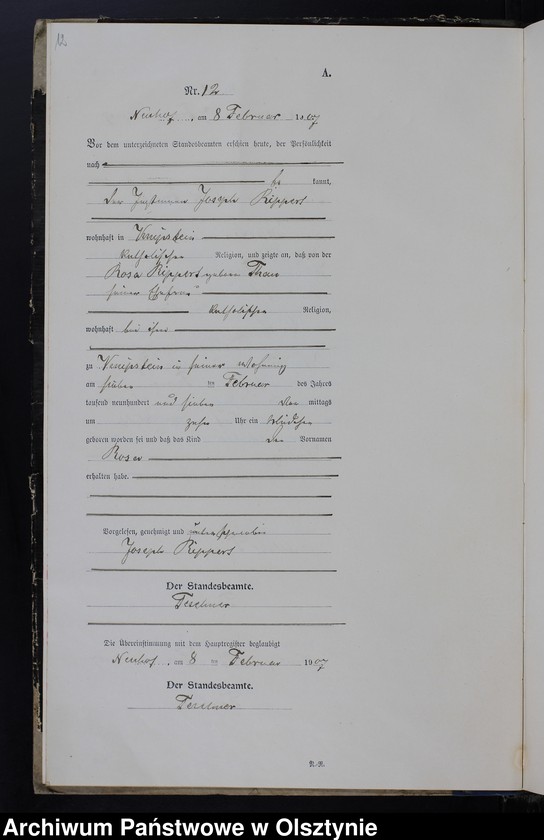 12
A.
Nr. 12
Neuhof, am 8 Februar 1907
Vor dem unterzeichneten Standesbeamten erschien heute, der Persönlichkeit
nach
be kannt,
der Joseph Rippert
wohnhaft in
katholischer Religion, und zeigte an, daß von der
Rosa Rippert geborene
seiner Ehefrau
katholischer Religion,
wohnhaft bei ihm
zu in seiner Wohnung
am sieben ten Februar des Jahres
tausend neunhundert und sieben Vor mittags
um zehn Uhr ein Mädchen
geboren worden sei und daß das Kind den Vornamen
Rosa
erhalten habe.
Vorgelesen, genehmigt und unterschrieben
Joseph Rippert
Der Standesbeamte.
Teschner
Die Übereinstimmung mit dem Hauptregister beglaubigt
Neuhof, am 8 ten Februar 1907
Der Standesbeamte.
Teschner
Archiwum Państwowe w Olsztynie